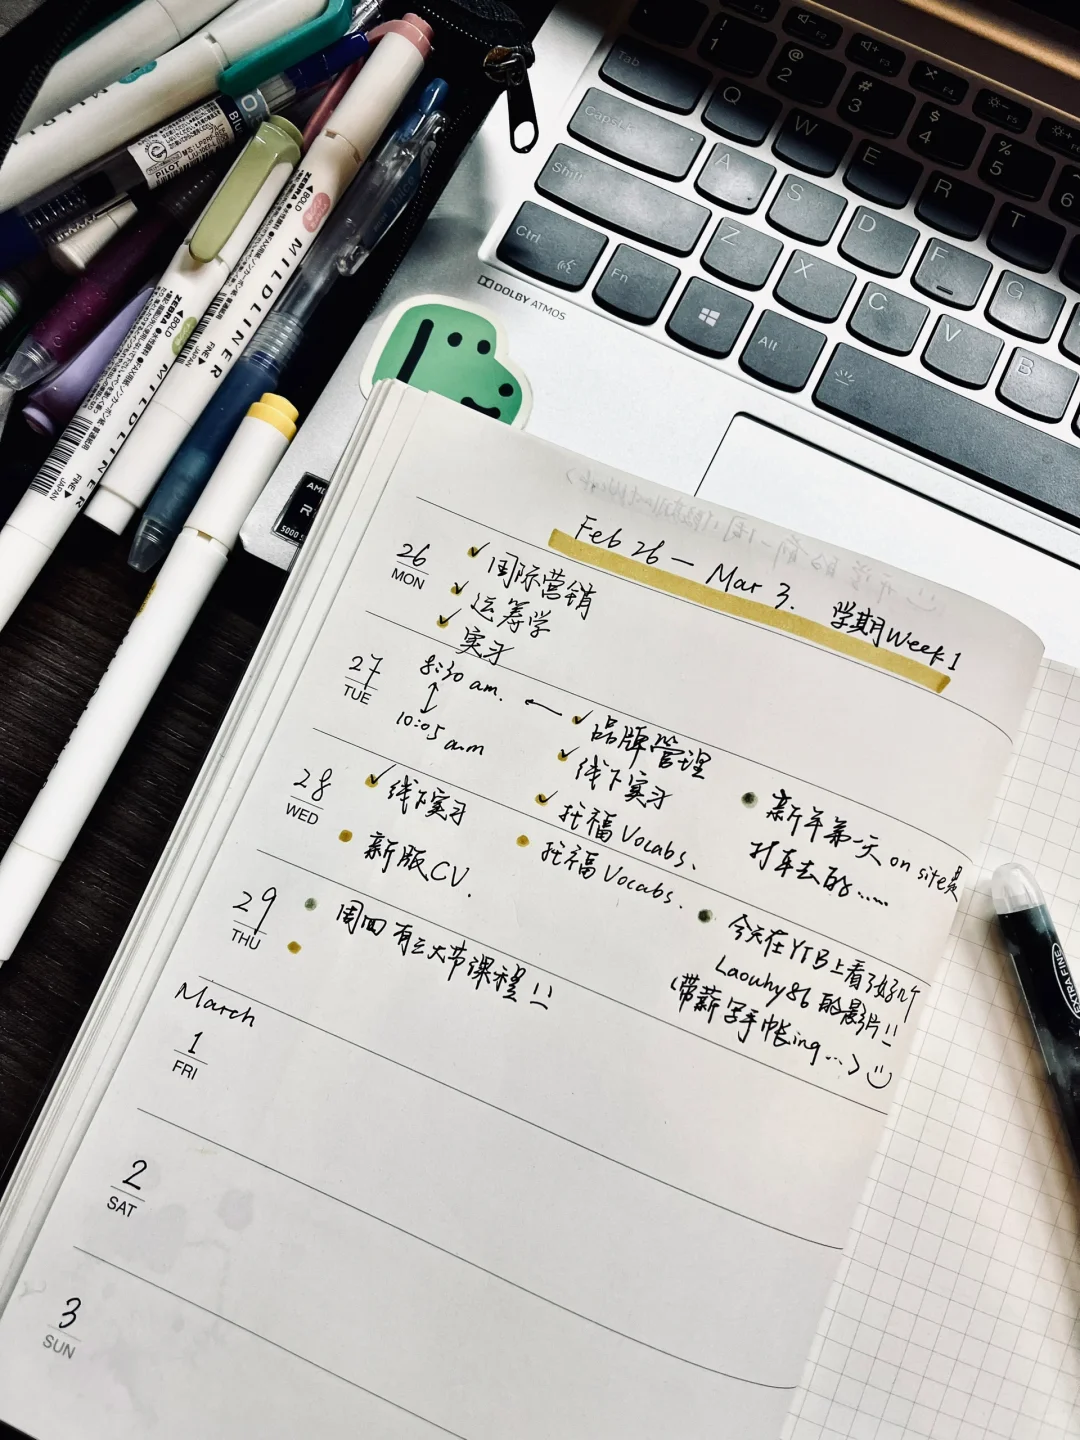 Feb 26 — Mar 3. 学期Week 1
26 MON
✓ 国际营销
✓ 运筹学
✓ 实习
27 TUE
8:30 am.
↕
10:05 am
← ✓ 品牌管理
✓ 线下实习
✓ 托福 Vocabs.
新年第一天 on site是
打车去的.....
28 WED
✓ 线下实习
新版CV.
托福 Vocabs.
今天在YTB上看了好几个
Laowhy86 的影片!!
(带薪写手帐ing...)
29 THU
周四有三大节课程!!
March
1 FRI
2 SAT
3 SUN
ZEBRA
BOLD
MILDLINER
FINE
JAPAN
ZEBRA
BOLD
MILDLINER
FINE
JAPAN
PILOT
DOLBY ATMOS
AMD
R
5000 S
EXTRA FINE
Tab
Caps
Shift
Ctrl
Fn
Alt
! 1
@ 2
# 3
$ 4
% 5
6
Q W E R T
A S D F G
Z X C V B
F1
F2
F3
F4
F5
F6